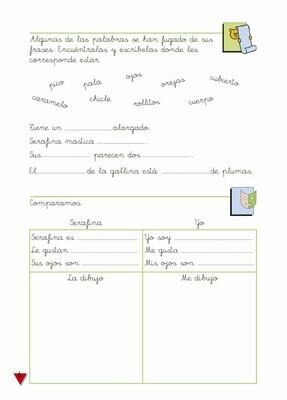 Algunas de las palabras se han fugado de sus
frases. Encuéntralas y escríbelas donde les
corresponde estar.
pico pala ojos orejas cubierto
caramelo chicle rollitos cuerpo
Tiene un alargado.
Serafina mastica .
Sus parecen dos .
El de la gallina está de plumas.
Comparamos.
Serafina Yo
Serafina es Yo soy
Le gustan Me gusta
Sus ojos son Mis ojos son
La dibujo Me dibujo